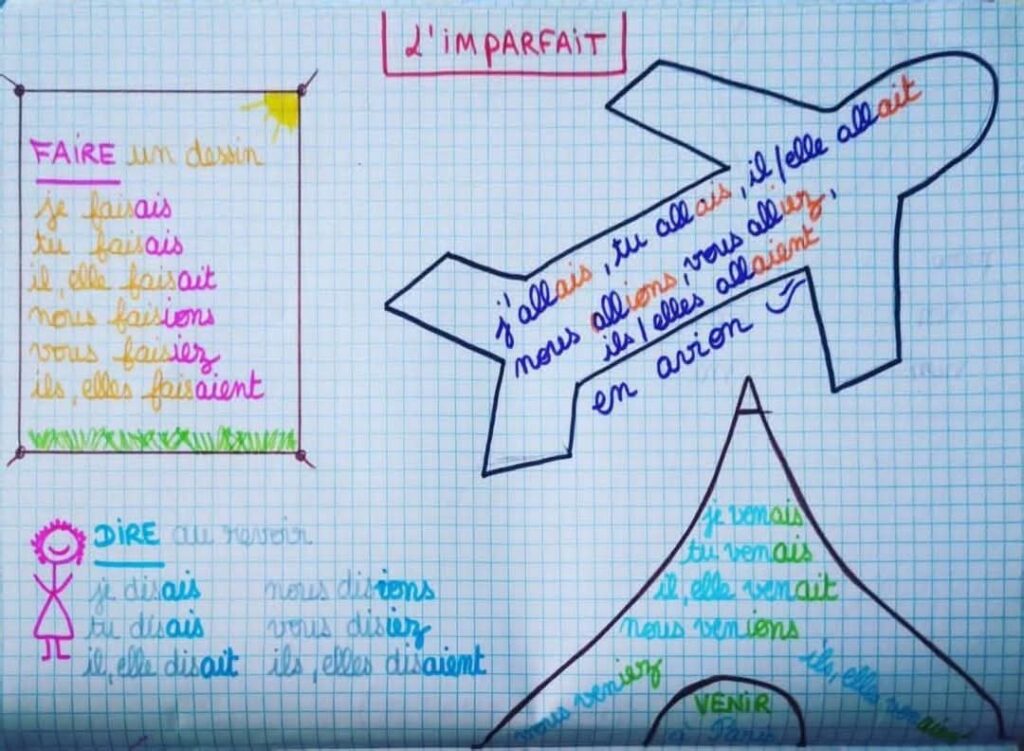 L'IMPARFAIT
FAIRE un dessin
je faisais
tu faisais
il, elle faisait
nous faisions
vous faisiez
ils, elles faisaient
j'allais, tu allais, il/elle allait
nous allions, vous alliez,
ils/elles allaient
en avion
DIRE au revoir
je disais
tu disais
il, elle disait
nous disions
vous disiez
ils, elles disaient
je venais
tu venais
il, elle venait
nous venions
vous veniez
ils, elles venaient
VENIR
à Paris